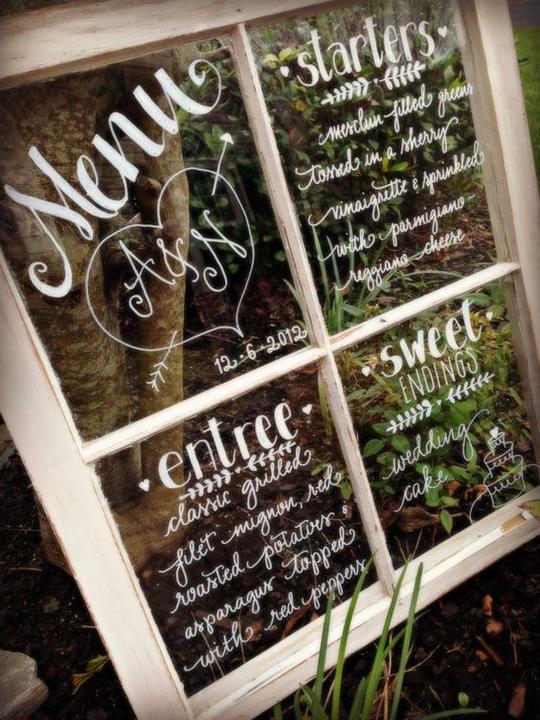 Menu
A&N
12-6-2012
starters
mesclun filled greens
tossed in a sherry
vinaigrette & sprinkled
with parmigiano-
reggiano cheese
entree
classic grilled
filet mignon, red
roasted potatoes &
asparagus topped
with red peppers
sweet
ENDINGS
wedding
cake